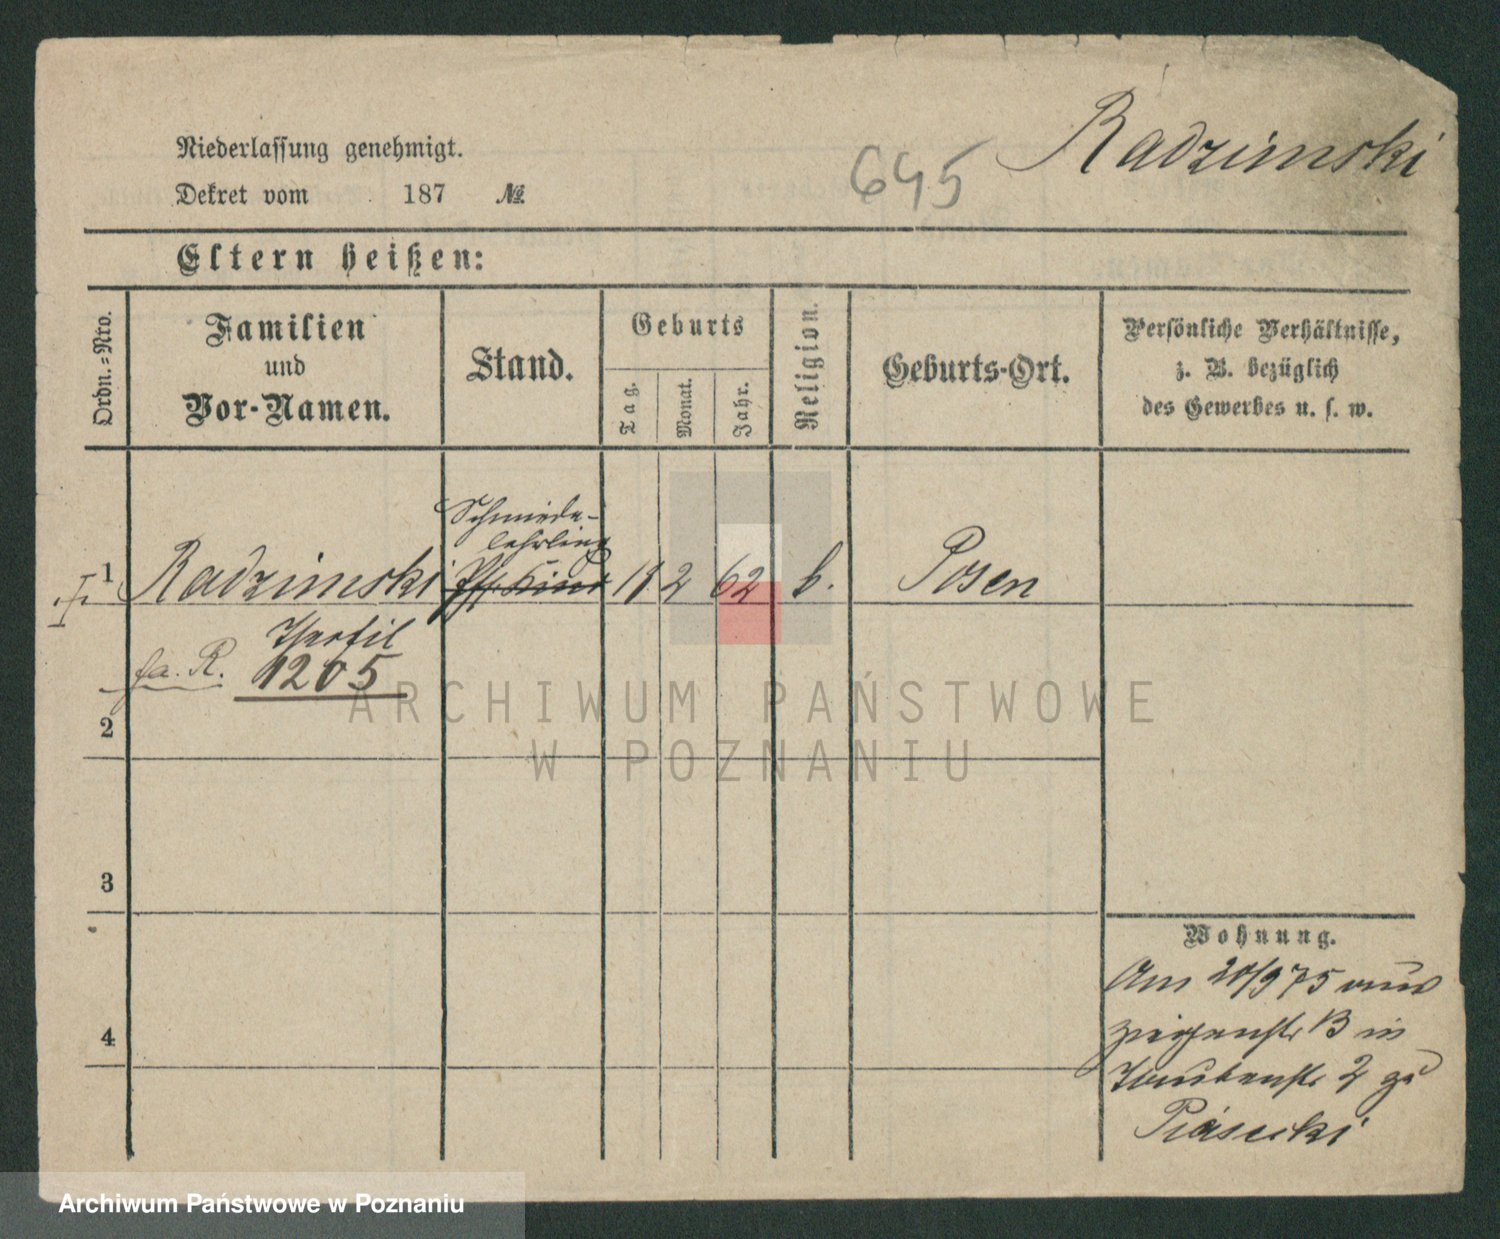 Radzimski
645
Niederlassung genehmigt.
Dekret vom 187 №
Eltern heißen:
Ordn.-Nro.
Familien
und
Vor-Namen.
Stand.
Geburts
Tag.
Monat.
Jahr.
Religion.
Geburts-Ort.
Persönliche Verhältnisse,
z. B. bezüglich
des Gewerbes u. s. w.
Schmiede-
lehrling
1 Radzimski 2 62 k. Posen
Theofil
fa. R. 1205
2
3
4
Wohnung.
Am 20/9 75 aus
B in
Taubenstr 2 zu
Piasecki
ARCHIWUM PAŃSTWOWE
W POZNANIU
Archiwum Państwowe w Poznaniu